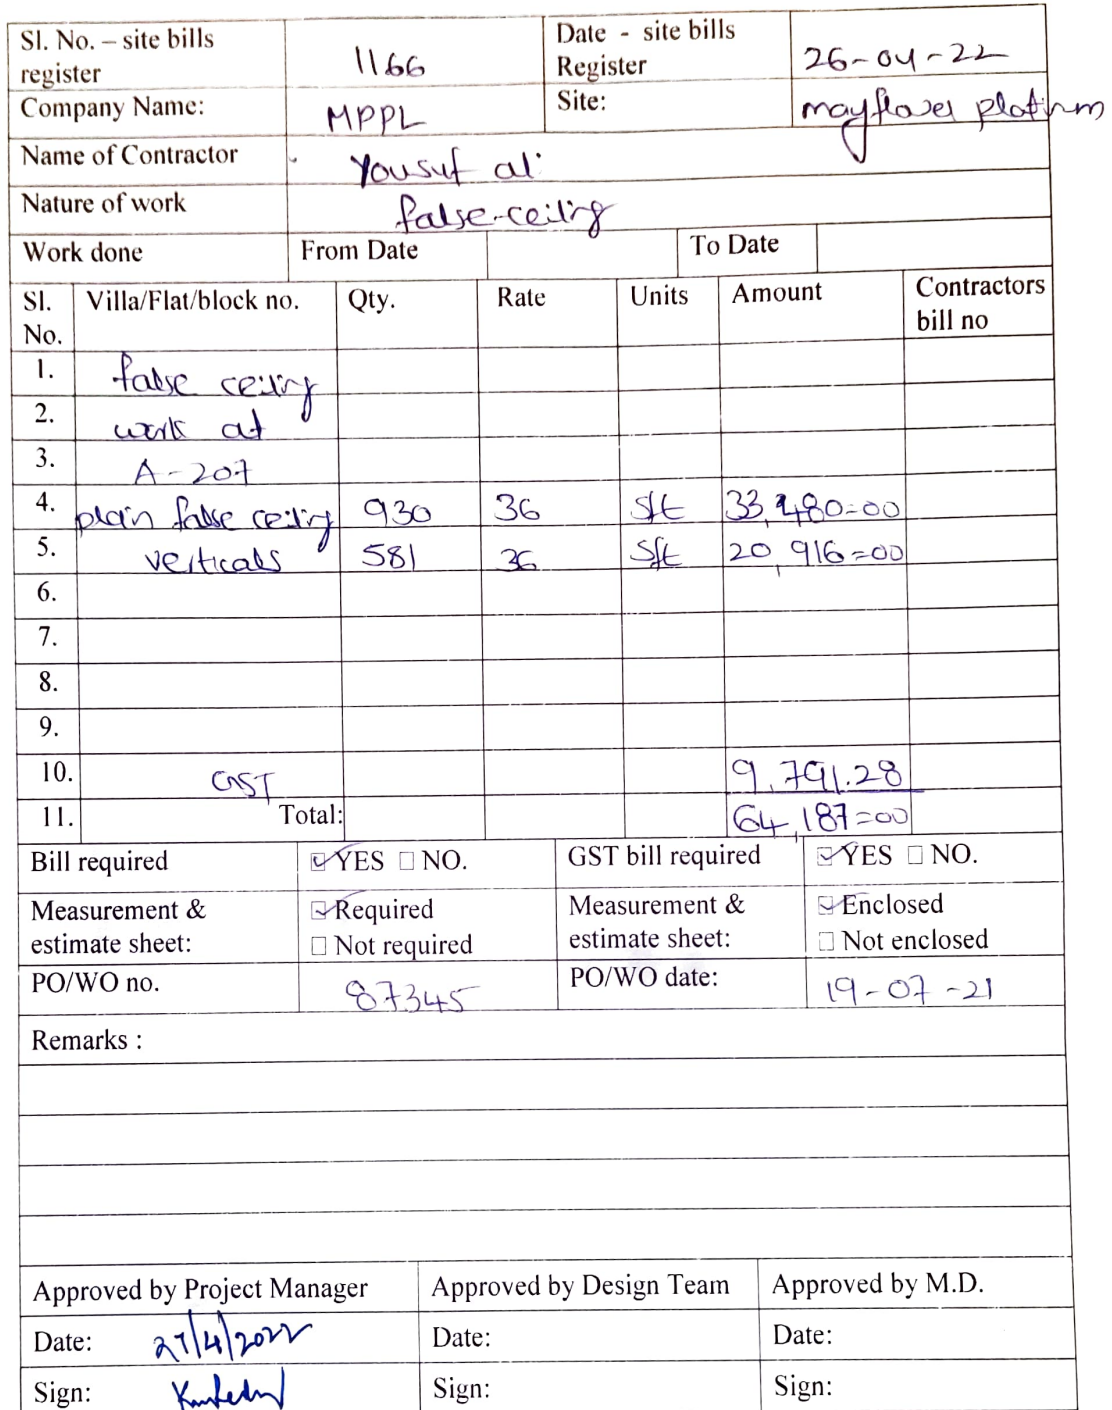 Sl. No. – site bills register 1166 Date - site bills Register 26-04-22
Company Name: MPPL Site: mayflower platinum
Name of Contractor Yousuf ali
Nature of work false-ceiling
Work done From Date To Date
Sl. No. Villa/Flat/block no. Qty. Rate Units Amount Contractors bill no
1. false ceiling
2. work at
3. A-207
4. plain false ceiling 930 36 Sft 33,480=00
5. verticals 581 36 Sft 20,916=00
6.
7.
8.
9.
10. GST 9,791.28
11. Total: 64,187=00
Bill required ☑ YES ☐ NO. GST bill required ☑ YES ☐ NO.
Measurement & estimate sheet: ☑ Required ☐ Not required Measurement & estimate sheet: ☑ Enclosed ☐ Not enclosed
PO/WO no. 87345 PO/WO date: 19-07-21
Remarks :
Approved by Project Manager Approved by Design Team Approved by M.D.
Date: 27/4/2022 Date: Date:
Sign: Sign: Sign: